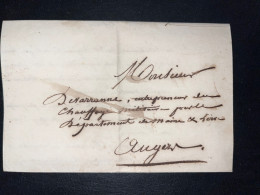 Monsieur
Desarranne, entrepreneur du
Chauffage pour le
Département de Maine & Loire
Angers